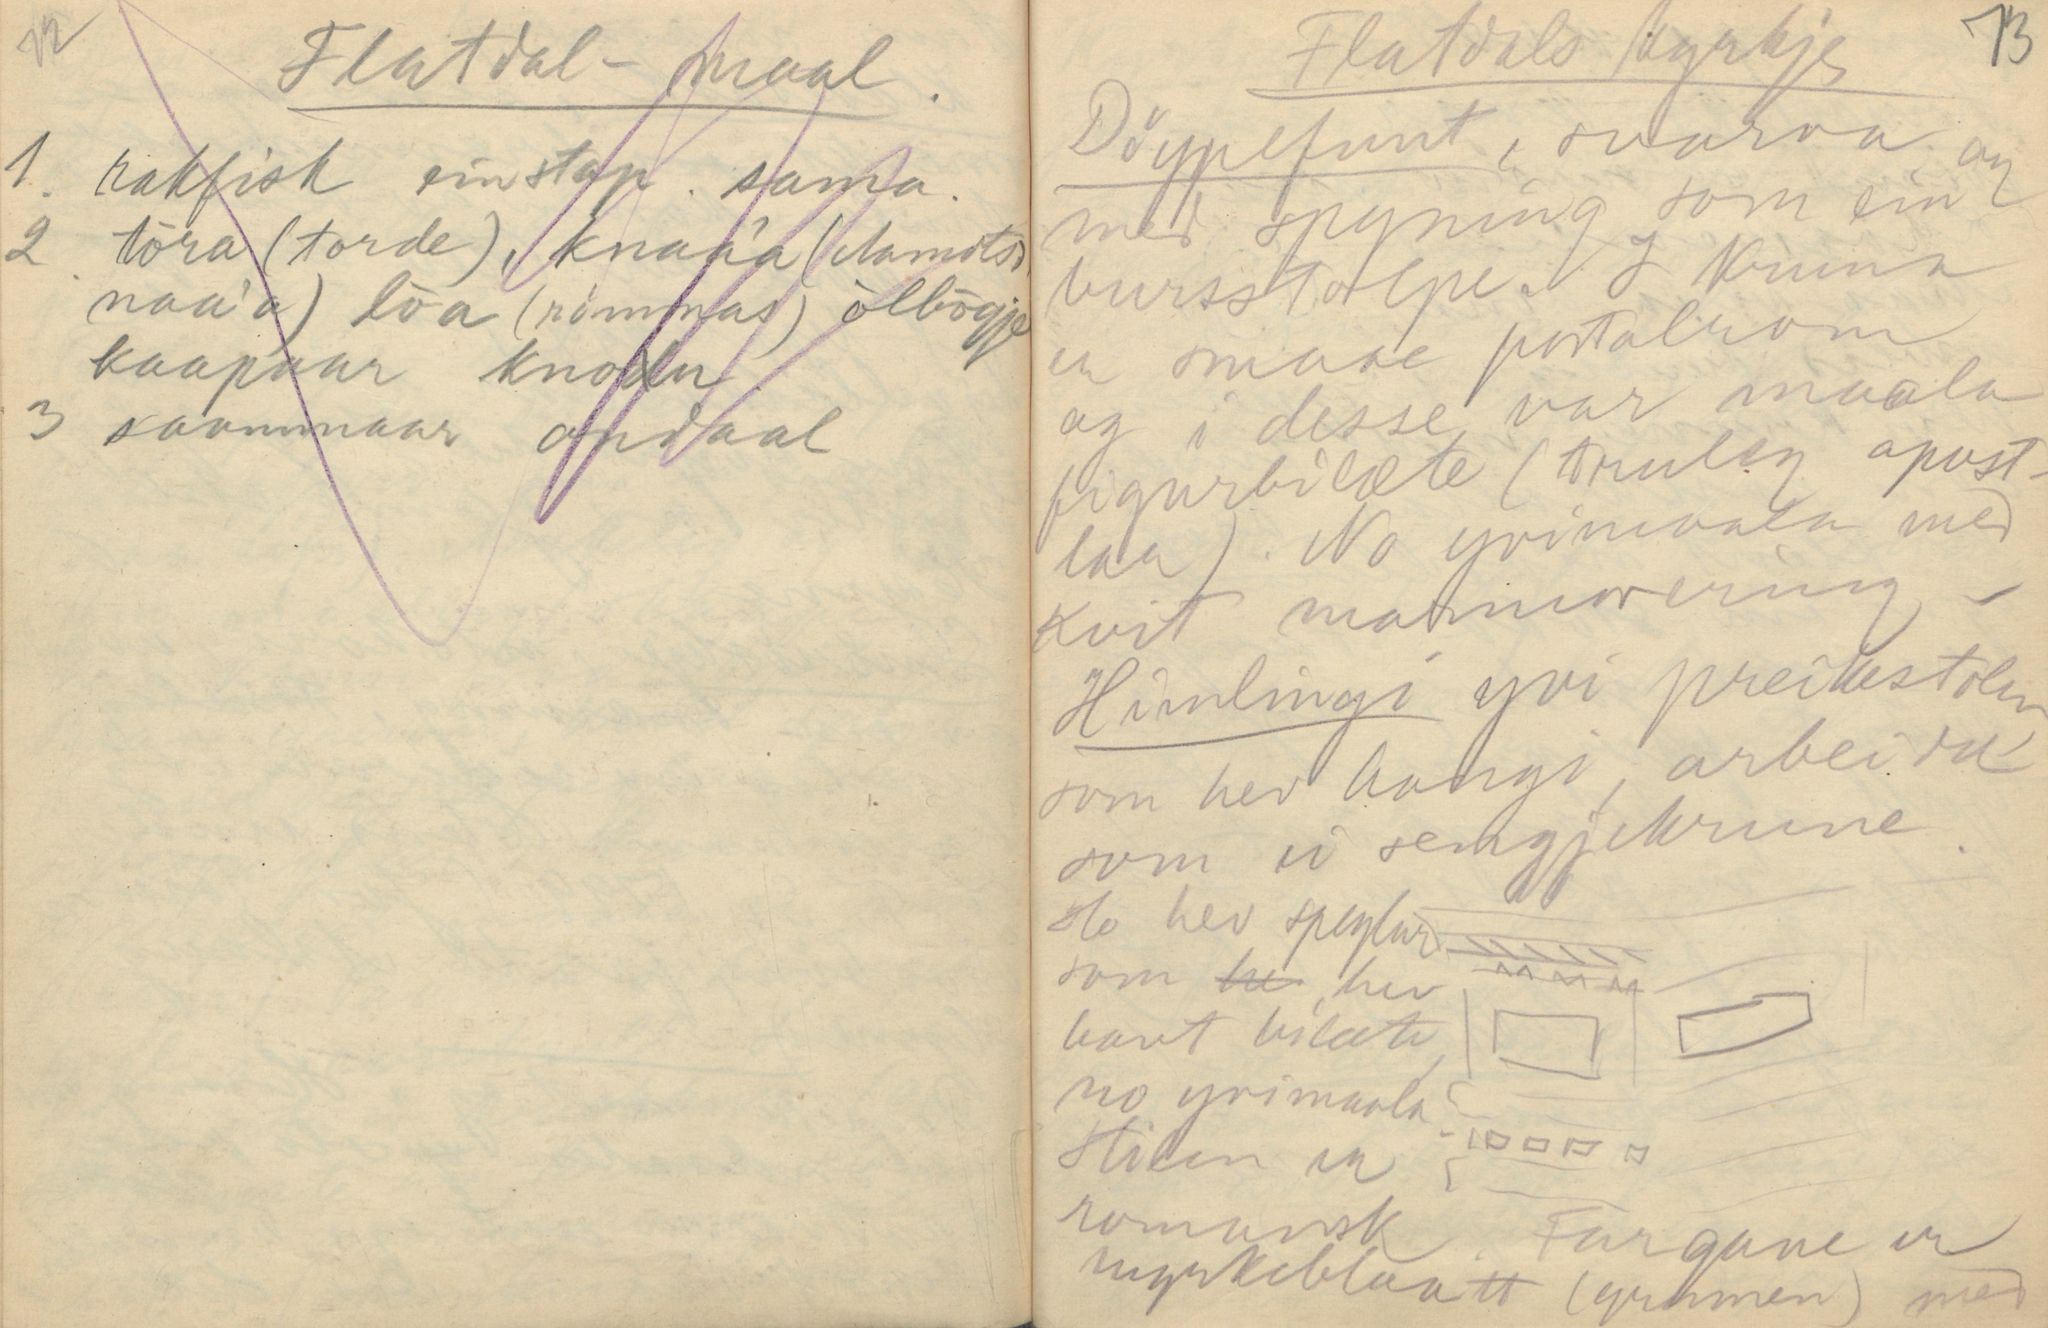 12
Flatdal-maal.
1. rakfisk einstap. sama.
2. tōra (torde), knaa'a
naa'a) lōa (rimmas) ōlbōgje
kaapaar knoda
3 saammaar opdaal
13
Flatdals kyrkje
Döypefunt, svarva og
med snyning som ein
bursstolpe. I kruna
er smaae portalrom
og i desse var maala
figurbilæte (truleg apost-
laa). No yvimaala med
kvit marmorering –
Himlingi yvi preikestolen
som hev hangi, arbeidd
som ei sengjekrune.
Ho hev speglar
som he hev
havt bilæte,
no yvimaala.
Stilen er
romansk. Fargane er
myrkeblaatt (grunnen) med